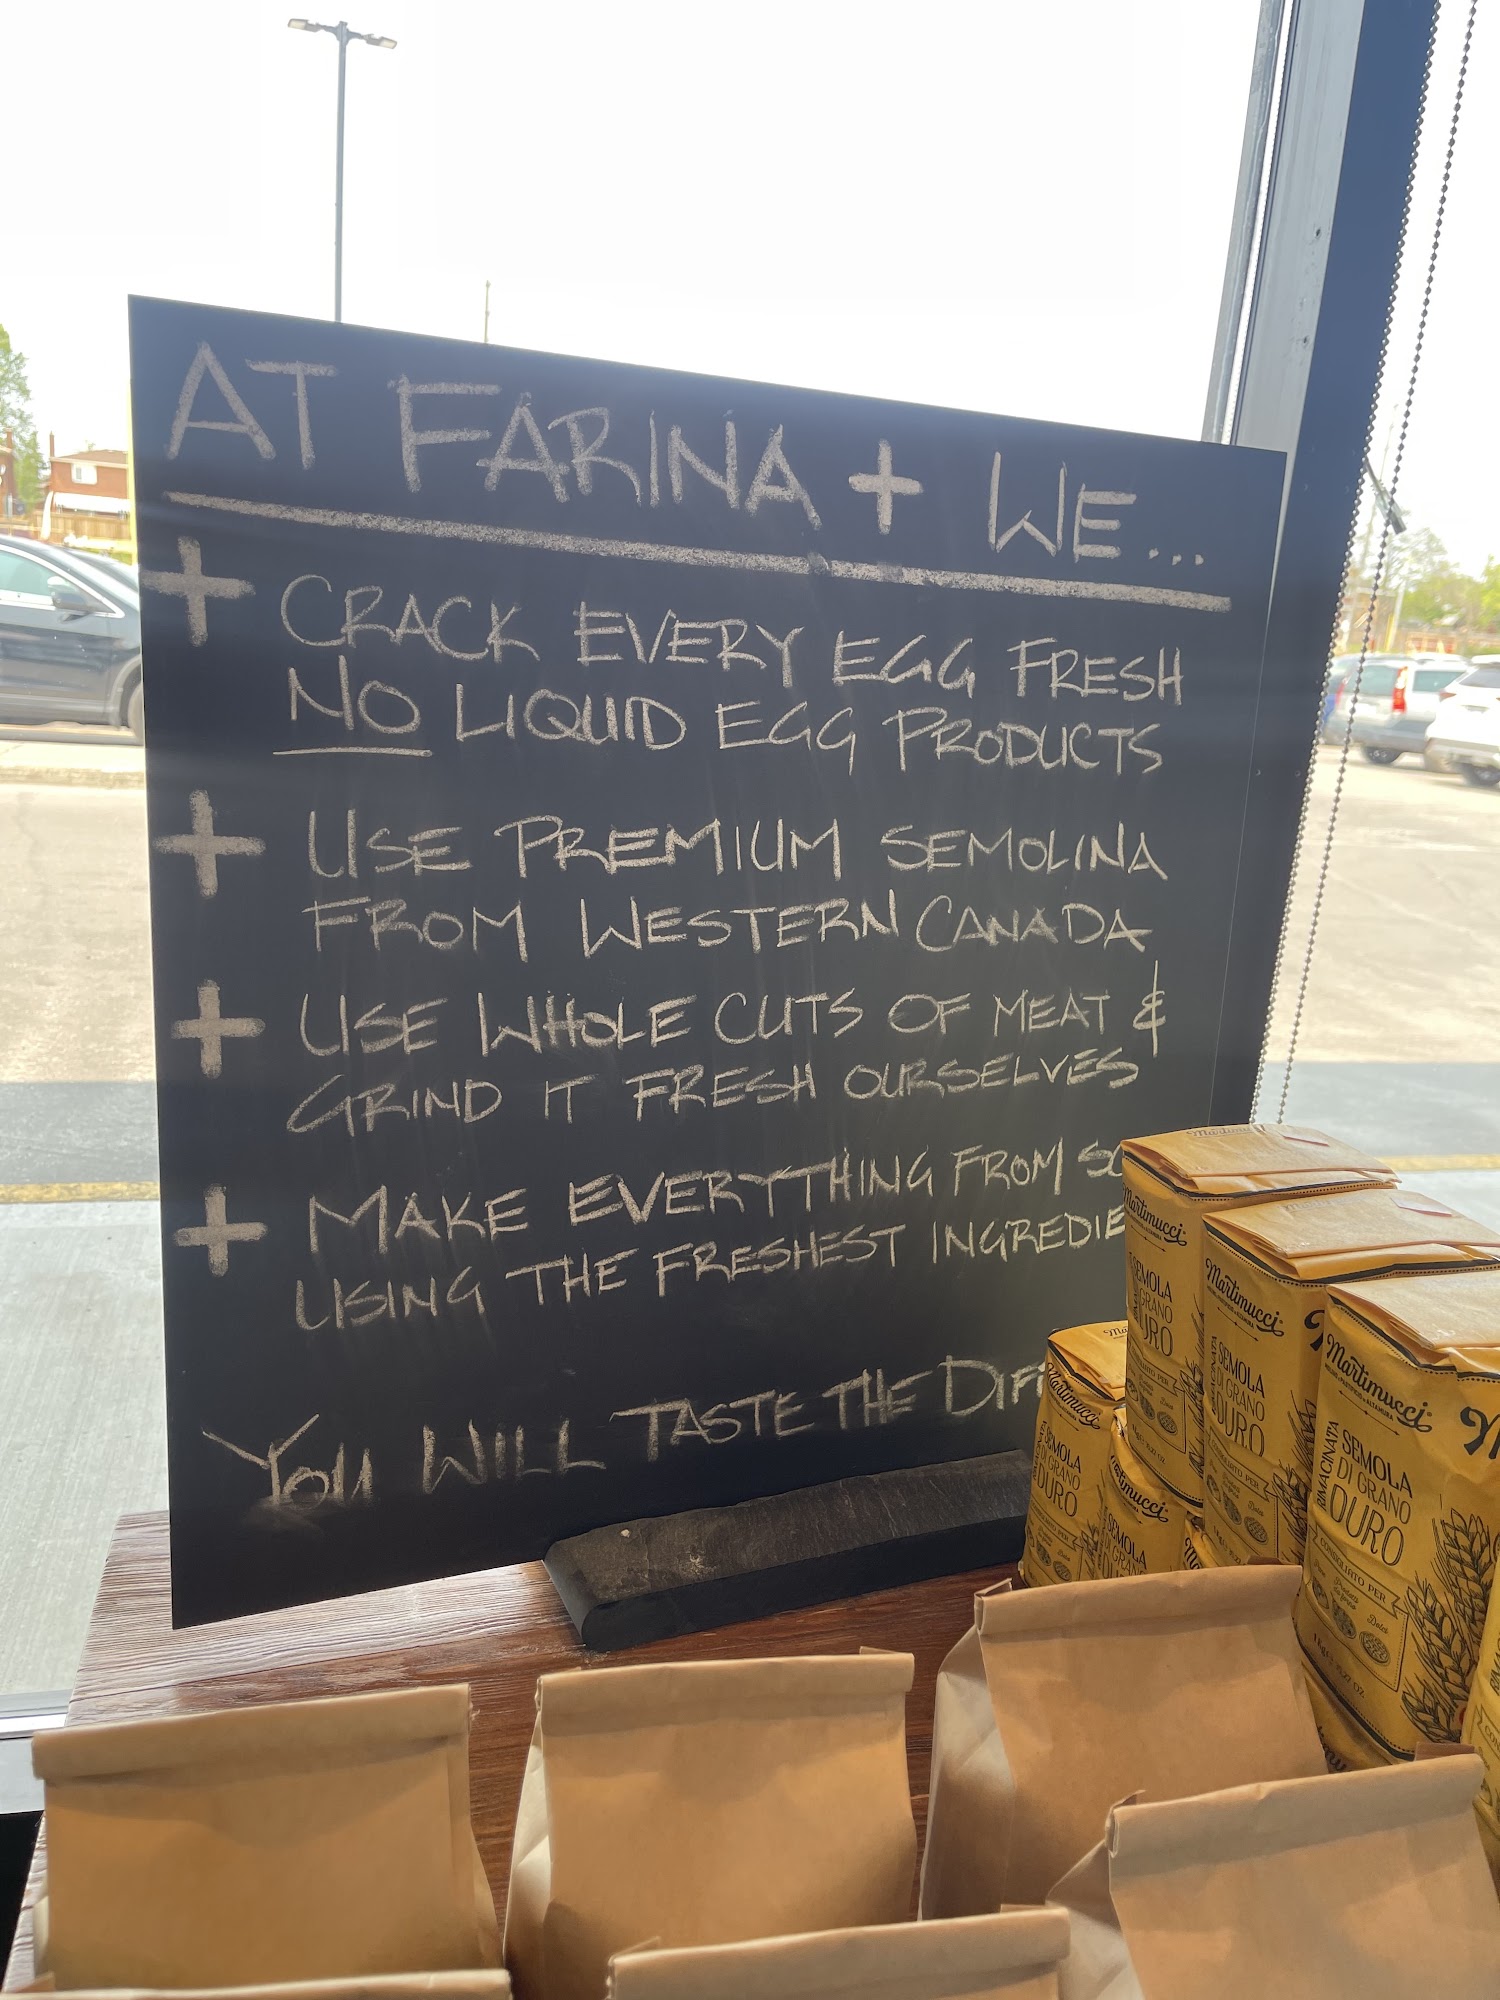 AT FARINA + WE...
+ CRACK EVERY EGG FRESH
NO LIQUID EGG PRODUCTS
+ USE PREMIUM SEMOLINA
FROM WESTERN CANADA
+ USE WHOLE CUTS OF MEAT &
GRIND IT FRESH OURSELVES
+ MAKE EVERYTHING FROM SC
USING THE FRESHEST INGREDIE
YOU WILL TASTE THE DIF
Martimucci
Martimucci
SEMOLA
DI GRANO
DURO
Martimucci
RIMACINATA
SEMOLA
DI GRANO
DURO
CONSIGLIATO PER
Martimucci
RIMACINATA
SEMOLA
DI GRANO
DURO
CONSIGLIATO PER
Dolci
Martimucci
SEMOLA
DI GRANO
DURO
Martimucci
SEMOLA
DI GRANO
DURO